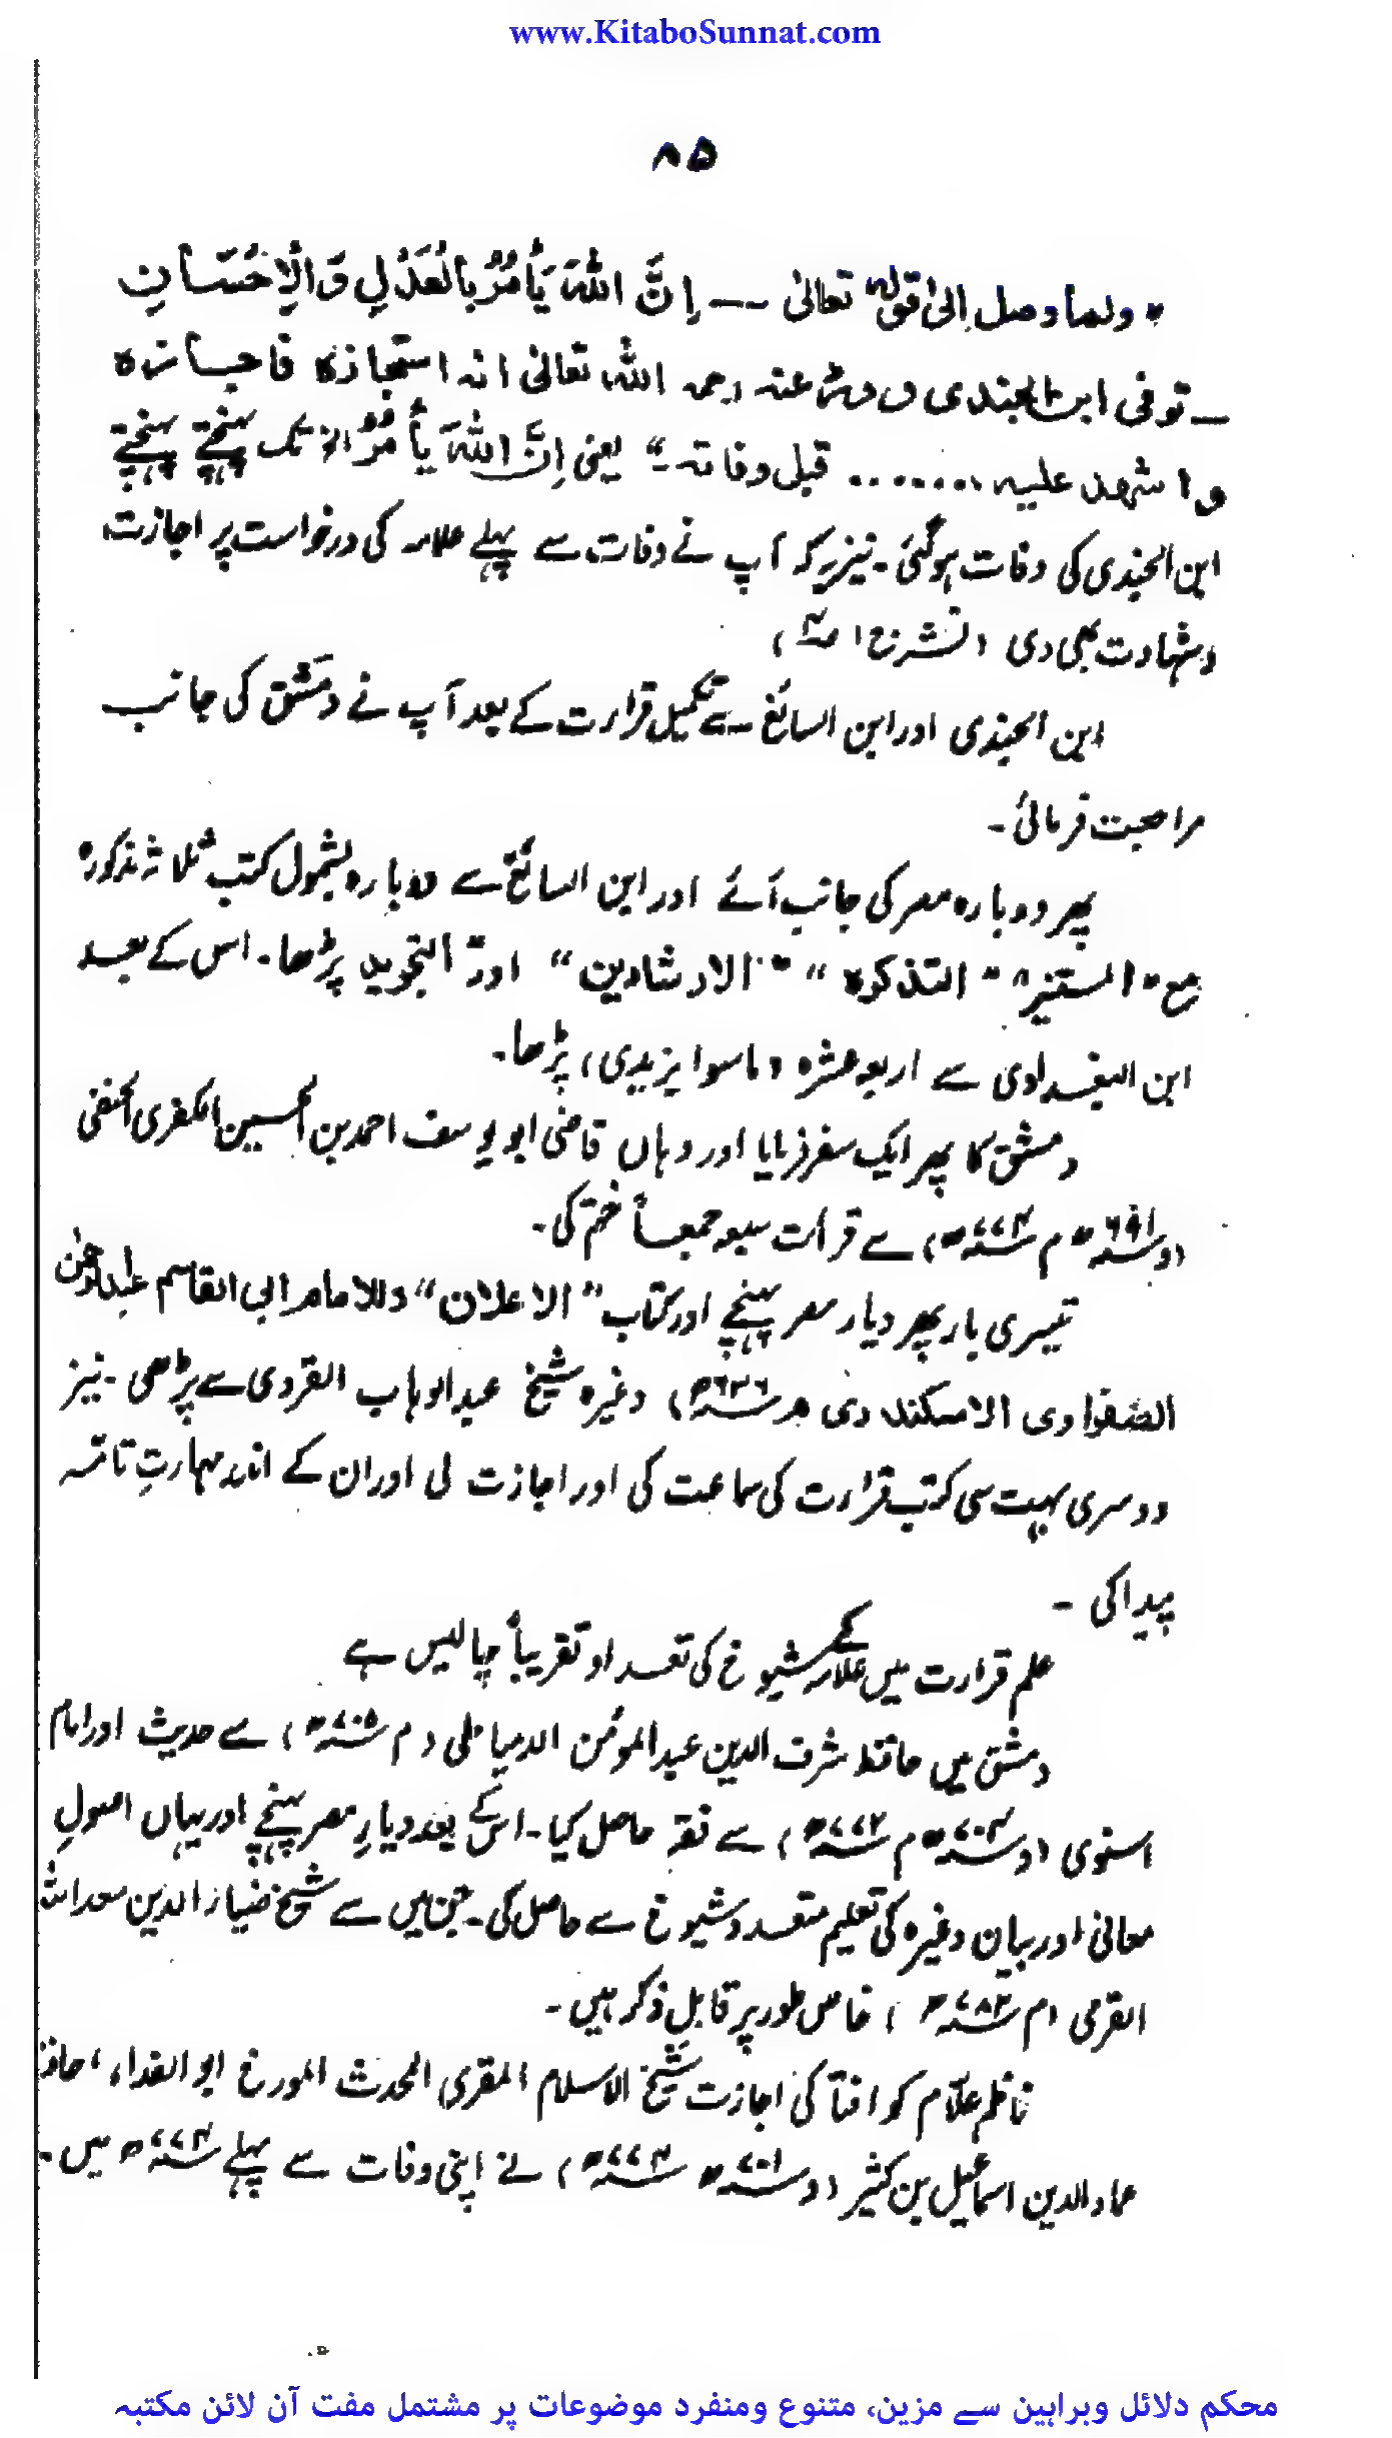 www.KitaboSunnat.com
۸۵
" ولما وصل الیٰ قولہ تعالیٰ -- اِنَّ اللّٰہَ یَأمُرُ بِالْعَدْلِ وَالْاِحْسَانِ
ـ توفی ابن الجندی و ورد عنہ رحمہ اللّٰہ تعالیٰ انہ استجازہ فاجازہ
و اشھد علیہ ........ قبل وفاتہ۔" یعنی اِنَّ اللّٰہَ یَأمُرُ الخ تک پہنچتے پہنچتے
ابن الجندی کی وفات ہوگئی۔ نیز یہ کہ آپ نے وفات سے پہلے علامہ کی درخواست پر اجازت
وشہادت بھی دی (نشر ج ۱ ص)
ابن الجندی اور ابن السائغ سے تکمیل قرارت کے بعد آپ نے دمشق کی جانب
مراجعت فرمائی۔
پھر دوبارہ مصر کی جانب آئے اور ابن السائغ سے دوبارہ بشمول کتب ثلاثہ مذکورہ
مع "المستنیر" "التذکرہ" "الارشادین" اور "التجرید پڑھا۔ اس کے بعد
ابن البغدادی سے اربعہ عشرہ (ماسوا یزیدی) پڑھا۔
دمشق کا پھر ایک سفر فرمایا اور وہاں قاضی ابو یوسف احمد بن الحسین الکفری الحنفی
(و ۶۹۱ھ م ۷۷۴ھ) سے قرأت سبعہ جمعاً ختم کی۔
تیسری بار پھر دیار مصر پہنچے اور کتاب "الاعلان" (للامام ابی القاسم عبدالرحمٰن
الصفراوی الاسکندری م ۶۳۶ھ) وغیرہ شیخ عبدالوہاب القروی سے پڑھی۔ نیز
دوسری بہت سی کتب قرارت کی سماعت کی اور اجازت لی اور ان کے اندر مہارتِ تامّہ
پیدا کی ۔
علم قرارت میں علامہ کے شیوخ کی تعداد تقریباً چالیس ہے
دمشق میں حافظ شرف الدین عبدالمؤمن الدمیاطی (م ۷۰۵ھ) سے حدیث اور امام
اسنوی (و ۷۰۴ھ م ۷۷۲ھ) سے فقہ حاصل کیا۔ اس کے بعد دیارِ مصر پہنچے اور یہاں اصولِ
معانی اور بیان وغیرہ کی تعلیم متعدد شیوخ سے حاصل کی۔ جن میں سے شیخ ضیاء الدین سعد اللہ
القرمی (م ۷۸۳ھ) خاص طور پر قابلِ ذکر ہیں۔
ناظم علّام کو افتاء کی اجازت شیخ الاسلام المقری المحدث المورخ ابو الفداء، حافظ
عماد الدین اسماعیل بن کثیر (و ۷۰۱ھ ۷۷۴ھ) نے اپنی وفات سے پہلے ۷۷۴ھ میں۔
محکم دلائل وبراہین سے مزین، متنوع ومنفرد موضوعات پر مشتمل مفت آن لائن مکتبہ